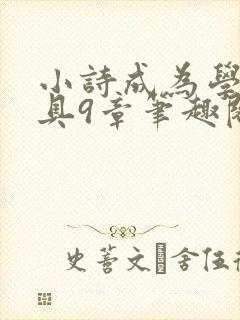 小詩成為學
具9章筆趣閣
史蓍文�舍伍